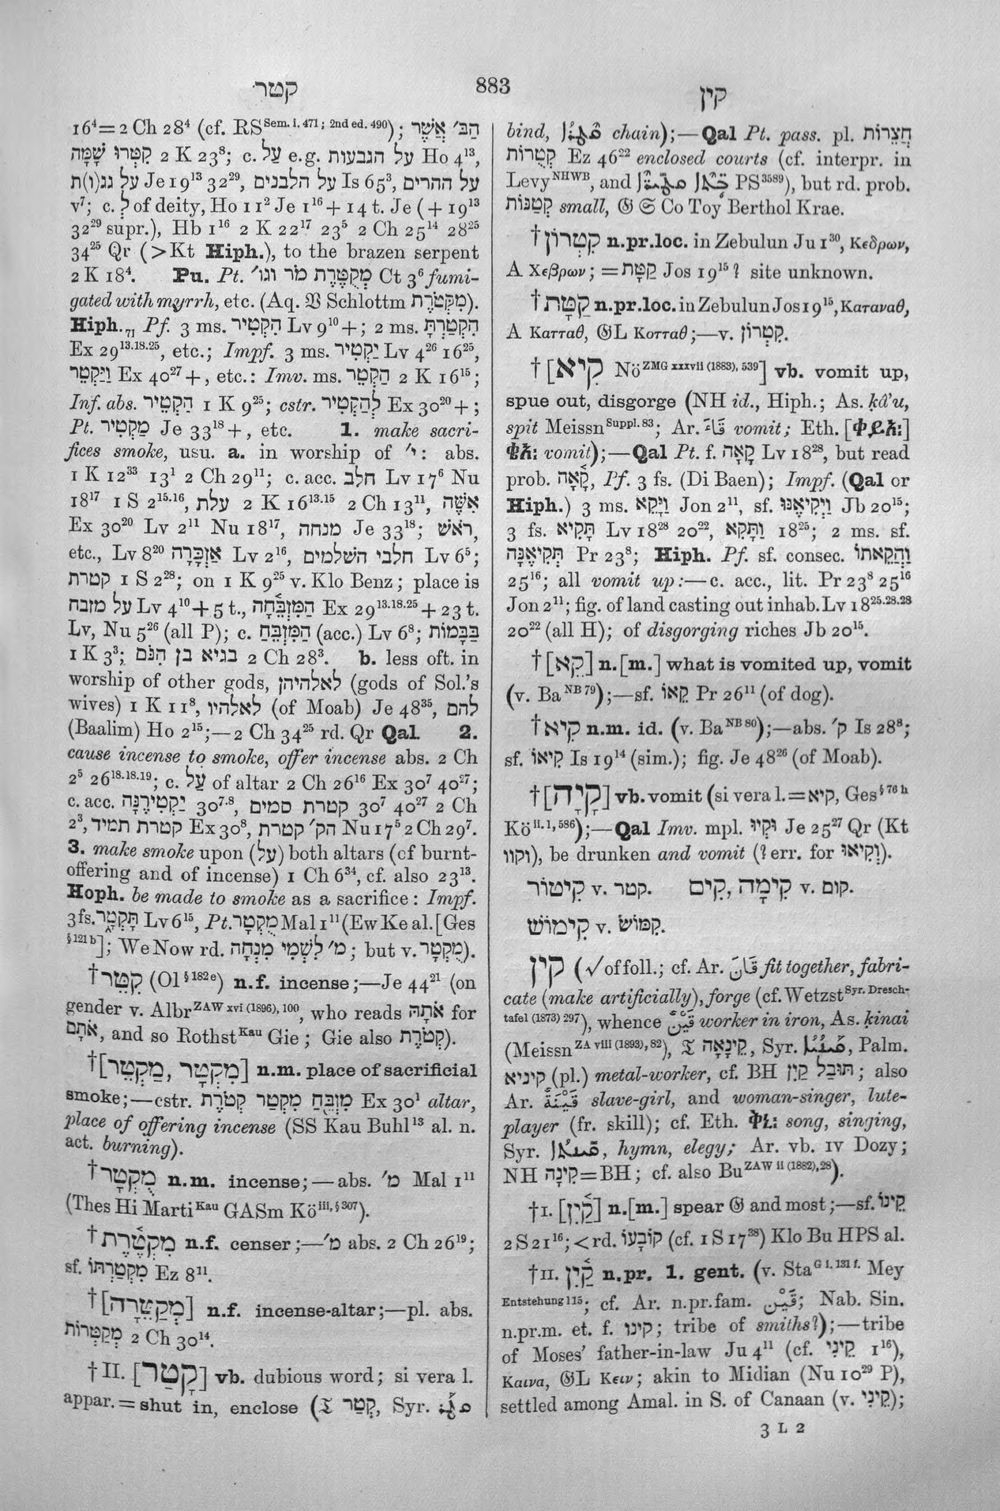 קטר
883
קין
16⁴=2 Ch 28⁴ (cf. RS Sem. i. 471; 2nd ed. 490); הַבּ׳ אֲשֶׁר
קִטְּרוּ שָׁמָּה 2 K 23⁸; c. עַל e.g. על הגבעות Ho 4¹³,
על גג(ו)ת Je 19¹³ 32²⁹, על הלבנים Is 65³, על ההרים
v⁷; c. לְ of deity, Ho 11² Je 1¹⁶ + 14 t. Je (+ 19¹³
32²⁹ supr.), Hb 1¹⁶ 2 K 22¹⁷ 23⁵ 2 Ch 25¹⁴ 28²⁵
34²⁵ Qr (>Kt Hiph.), to the brazen serpent
2 K 18⁴. Pu. Pt. מְקֻטֶּרֶת מֹר וגו׳ Ct 3⁶ fumi-
gated with myrrh, etc. (Aq. 𝔙 Schlottm מִקְּטֹרֶת).
Hiph.₇₁ Pf. 3 ms. הִקְטִיר Lv 9¹⁰+; 2 ms. הִקְטַרְתָּ
Ex 29¹³·¹⁸·²⁵, etc.; Impf. 3 ms. יַקְטִיר Lv 4²⁶ 16²⁵,
וַיַּקְטֵר Ex 40²⁷+, etc.: Imv. ms. הַקְטֵר 2 K 16¹⁵;
Inf. abs. הַקְטֵיר 1 K 9²⁵; cstr. לְהַקְטִיר Ex 30²⁰+;
Pt. מַקְטִיר Je 33¹⁸+, etc. 1. make sacri-
fices smoke, usu. a. in worship of י׳: abs.
1 K 12³³ 13¹ 2 Ch 29¹¹; c. acc. חלב Lv 17⁶ Nu
18¹⁷ 1 S 2¹⁵·¹⁶, עלת 2 K 16¹³·¹⁵ 2 Ch 13¹¹, אִשֶּׁה
Ex 30²⁰ Lv 2¹¹ Nu 18¹⁷, מנחה Je 33¹⁸; רֹאשׁ,
etc., Lv 8²⁰ אַזְכָּרָה Lv 2¹⁶, חלבי השלמים Lv 6⁵;
קטרת 1 S 2²⁸; on 1 K 9²⁵ v. Klo Benz; place is
על מזבח Lv 4¹⁰+5 t., הַמִּזְבֵּחָה Ex 29¹³·¹⁸·²⁵+23 t.
Lv, Nu 5²⁶ (all P); c. הַמִּזְבֵּחַ (acc.) Lv 6⁸; בַּבָּמוֹת
1 K 3³; בגיא בן הִנֹּם 2 Ch 28³. b. less oft. in
worship of other gods, לאלהיהן (gods of Sol.'s
wives) 1 K 11⁸, לאלהיו (of Moab) Je 48³⁵, להם
(Baalim) Ho 2¹⁵;—2 Ch 34²⁵ rd. Qr Qal 2.
cause incense to smoke, offer incense abs. 2 Ch
2⁵ 26¹⁸·¹⁸·¹⁹; c. עַל of altar 2 Ch 26¹⁶ Ex 30⁷ 40²⁷;
c. acc. יַקְטִירֶנָּה 30⁷·⁸, קטרת סמים 30⁷ 40²⁷ 2 Ch
2³, קטרת תמיד Ex 30⁸, הק׳ קטרת Nu 17⁵ 2 Ch 29⁷.
3. make smoke upon (על) both altars (cf burnt-
offering and of incense) 1 Ch 6³⁴, cf. also 23¹³.
Hoph. be made to smoke as a sacrifice: Impf.
3 fs. תָּקְטָר Lv 6¹⁵, Pt. מֻקְטָר Mal 1¹¹ (Ew Ke al. [Ges
§ 121 b]; We Now rd. מ׳ לִשְׁמִי מִנְחָה; but v. מֻקְטָר).
†קִטֵּר (Ol § 182e) n.f. incense;—Je 44²¹ (on
gender v. Albr ZAW xvi (1896), 100, who reads אֹתָהּ for
אֹתָם, and so Rothst Kau Gie; Gie also קְטֹרֶת).
†[מַקְטֵר, מִקְטָר] n.m. place of sacrificial
smoke;—cstr. מִזְבֵּחַ מִקְטַר קְטֹרֶת Ex 30¹ altar,
place of offering incense (SS Kau Buhl¹³ al. n.
act. burning).
†מֻקְטָר n.m. incense;—abs. מ׳ Mal 1¹¹
(Thes Hi Marti Kau GASm Kö iii, § 307).
†מִקְטֶרֶת n.f. censer;—מ׳ abs. 2 Ch 26¹⁹;
sf. מִקְטַרְתּוֹ Ez 8¹¹.
†[מְקַטְּרָה] n.f. incense-altar;—pl. abs.
מְקַטְּרוֹת 2 Ch 30¹⁴.
†II. [קָטַר] vb. dubious word; si vera l.
appar. = shut in, enclose (𝔗 קְטַר, Syr.
bind, chain);—Qal Pt. pass. pl. חֲצֵרוֹת
קְטֻרוֹת Ez 46²² enclosed courts (cf. interpr. in
Levy NHWB, and PS 3589), but rd. prob.
קְטַנּוֹת small, 𝔊 𝔖 Co Toy Berthol Krae.
†קִטְרוֹן n.pr.loc. in Zebulun Ju 1³⁰, Κεδρων,
A Χεβρων; = קַטָּת Jos 19¹⁵? site unknown.
†קַטָּת n.pr.loc. in Zebulun Jos 19¹⁵, Καταναθ,
A Κατταθ, 𝔊L Κοτταθ;—v. קִטְרוֹן.
†[קִיא Nö ZMG xxxvii (1883), 539] vb. vomit up,
spue out, disgorge (NH id., Hiph.; As. ḳâ'u,
spit Meissn Suppl. 83; Ar. قَاءَ vomit; Eth.
vomit);—Qal Pt. f. קָאָה Lv 18²⁸, but read
prob. קָאָה, Pf. 3 fs. (Di Baen); Impf. (Qal or
Hiph.) 3 ms. וַיָּקֵא Jon 2¹¹, sf. וַיְקִיאֶנּוּ Jb 20¹⁵;
3 fs. תָּקִיא Lv 18²⁸ 20²², וַתָּקִא 18²⁵; 2 ms. sf.
תְּקִיאֶנָּה Pr 23⁸; Hiph. Pf. sf. consec. וַהֲקֵאתוֹ
25¹⁶; all vomit up:—c. acc., lit. Pr 23⁸ 25¹⁶
Jon 2¹¹; fig. of land casting out inhab. Lv 18²⁵·²⁸·²⁸
20²² (all H); of disgorging riches Jb 20¹⁵.
†[קֵא] n.[m.] what is vomited up, vomit
(v. Ba NB 79);—sf. קֵאוֹ Pr 26¹¹ (of dog).
†קִיא n.m. id. (v. Ba NB 80);—abs. ק׳ Is 28⁸;
sf. קִיאוֹ Is 19¹⁴ (sim.); fig. Je 48²⁶ (of Moab).
†[קָיָה] vb. vomit (si vera l. = קִיא, Ges § 76 h
Kö ii. 1, 586);—Qal Imv. mpl. וּקְיוּ Je 25²⁷ Qr (Kt
וקוו), be drunken and vomit (? err. for וְקִיאוּ).
קִיטוֹר v. קטר. קִימָה, קִים v. קום.
קִימוֹשׁ v. קִמּוֹשׂ.
קין (√ of foll.; cf. Ar. قَانَ fit together, fabri-
cate (make artificially), forge (cf. Wetzst Syr. Dresch-
tafel (1873) 297), whence قَيْنٌ worker in iron, As. ḳinai
(Meissn ZA viii (1893), 82), 𝔗 קֵינָאָה, Syr. Palm.
קיניא (pl.) metal-worker, cf. BH תּוּבַל קַיִן; also
Ar. قَيْنَةٌ slave-girl, and woman-singer, lute-
player (fr. skill); cf. Eth. song, singing,
Syr. hymn, elegy; Ar. vb. IV Dozy;
NH קִינָה=BH; cf. also Bu ZAW ii (1882), 28).
†I. [קַיִן] n.[m.] spear 𝔊 and most;—sf. קֵינוֹ
2 S 21¹⁶; < rd. קוֹבָעוֹ (cf. 1 S 17³⁸) Klo Bu HPS al.
†II. קַיִן n.pr. 1. gent. (v. Sta G i. 131 f. Mey
Entstehung 115; cf. Ar. n.pr.fam. قَيْنٌ; Nab. Sin.
n.pr.m. et. f. קינו; tribe of smiths?);—tribe
of Moses' father-in-law Ju 4¹¹ (cf. קֵינִי 1¹⁶),
Καινα, 𝔊L Κειν; akin to Midian (Nu 10²⁹ P),
settled among Amal. in S. of Canaan (v. קֵינִי);
3 L 2